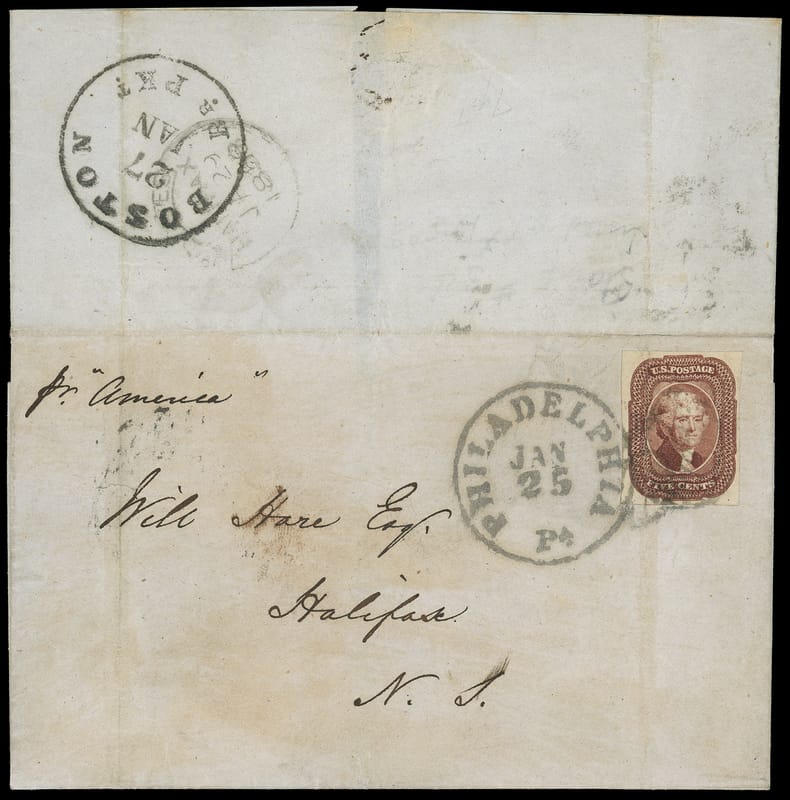 BOSTON
BR. PKT
JAN
27
pr. "America"
U.S. POSTAGE
FIVE CENTS
PHILADELPHIA
JAN
25
Pa
Will Hare Esq.
Halifax
N. S.